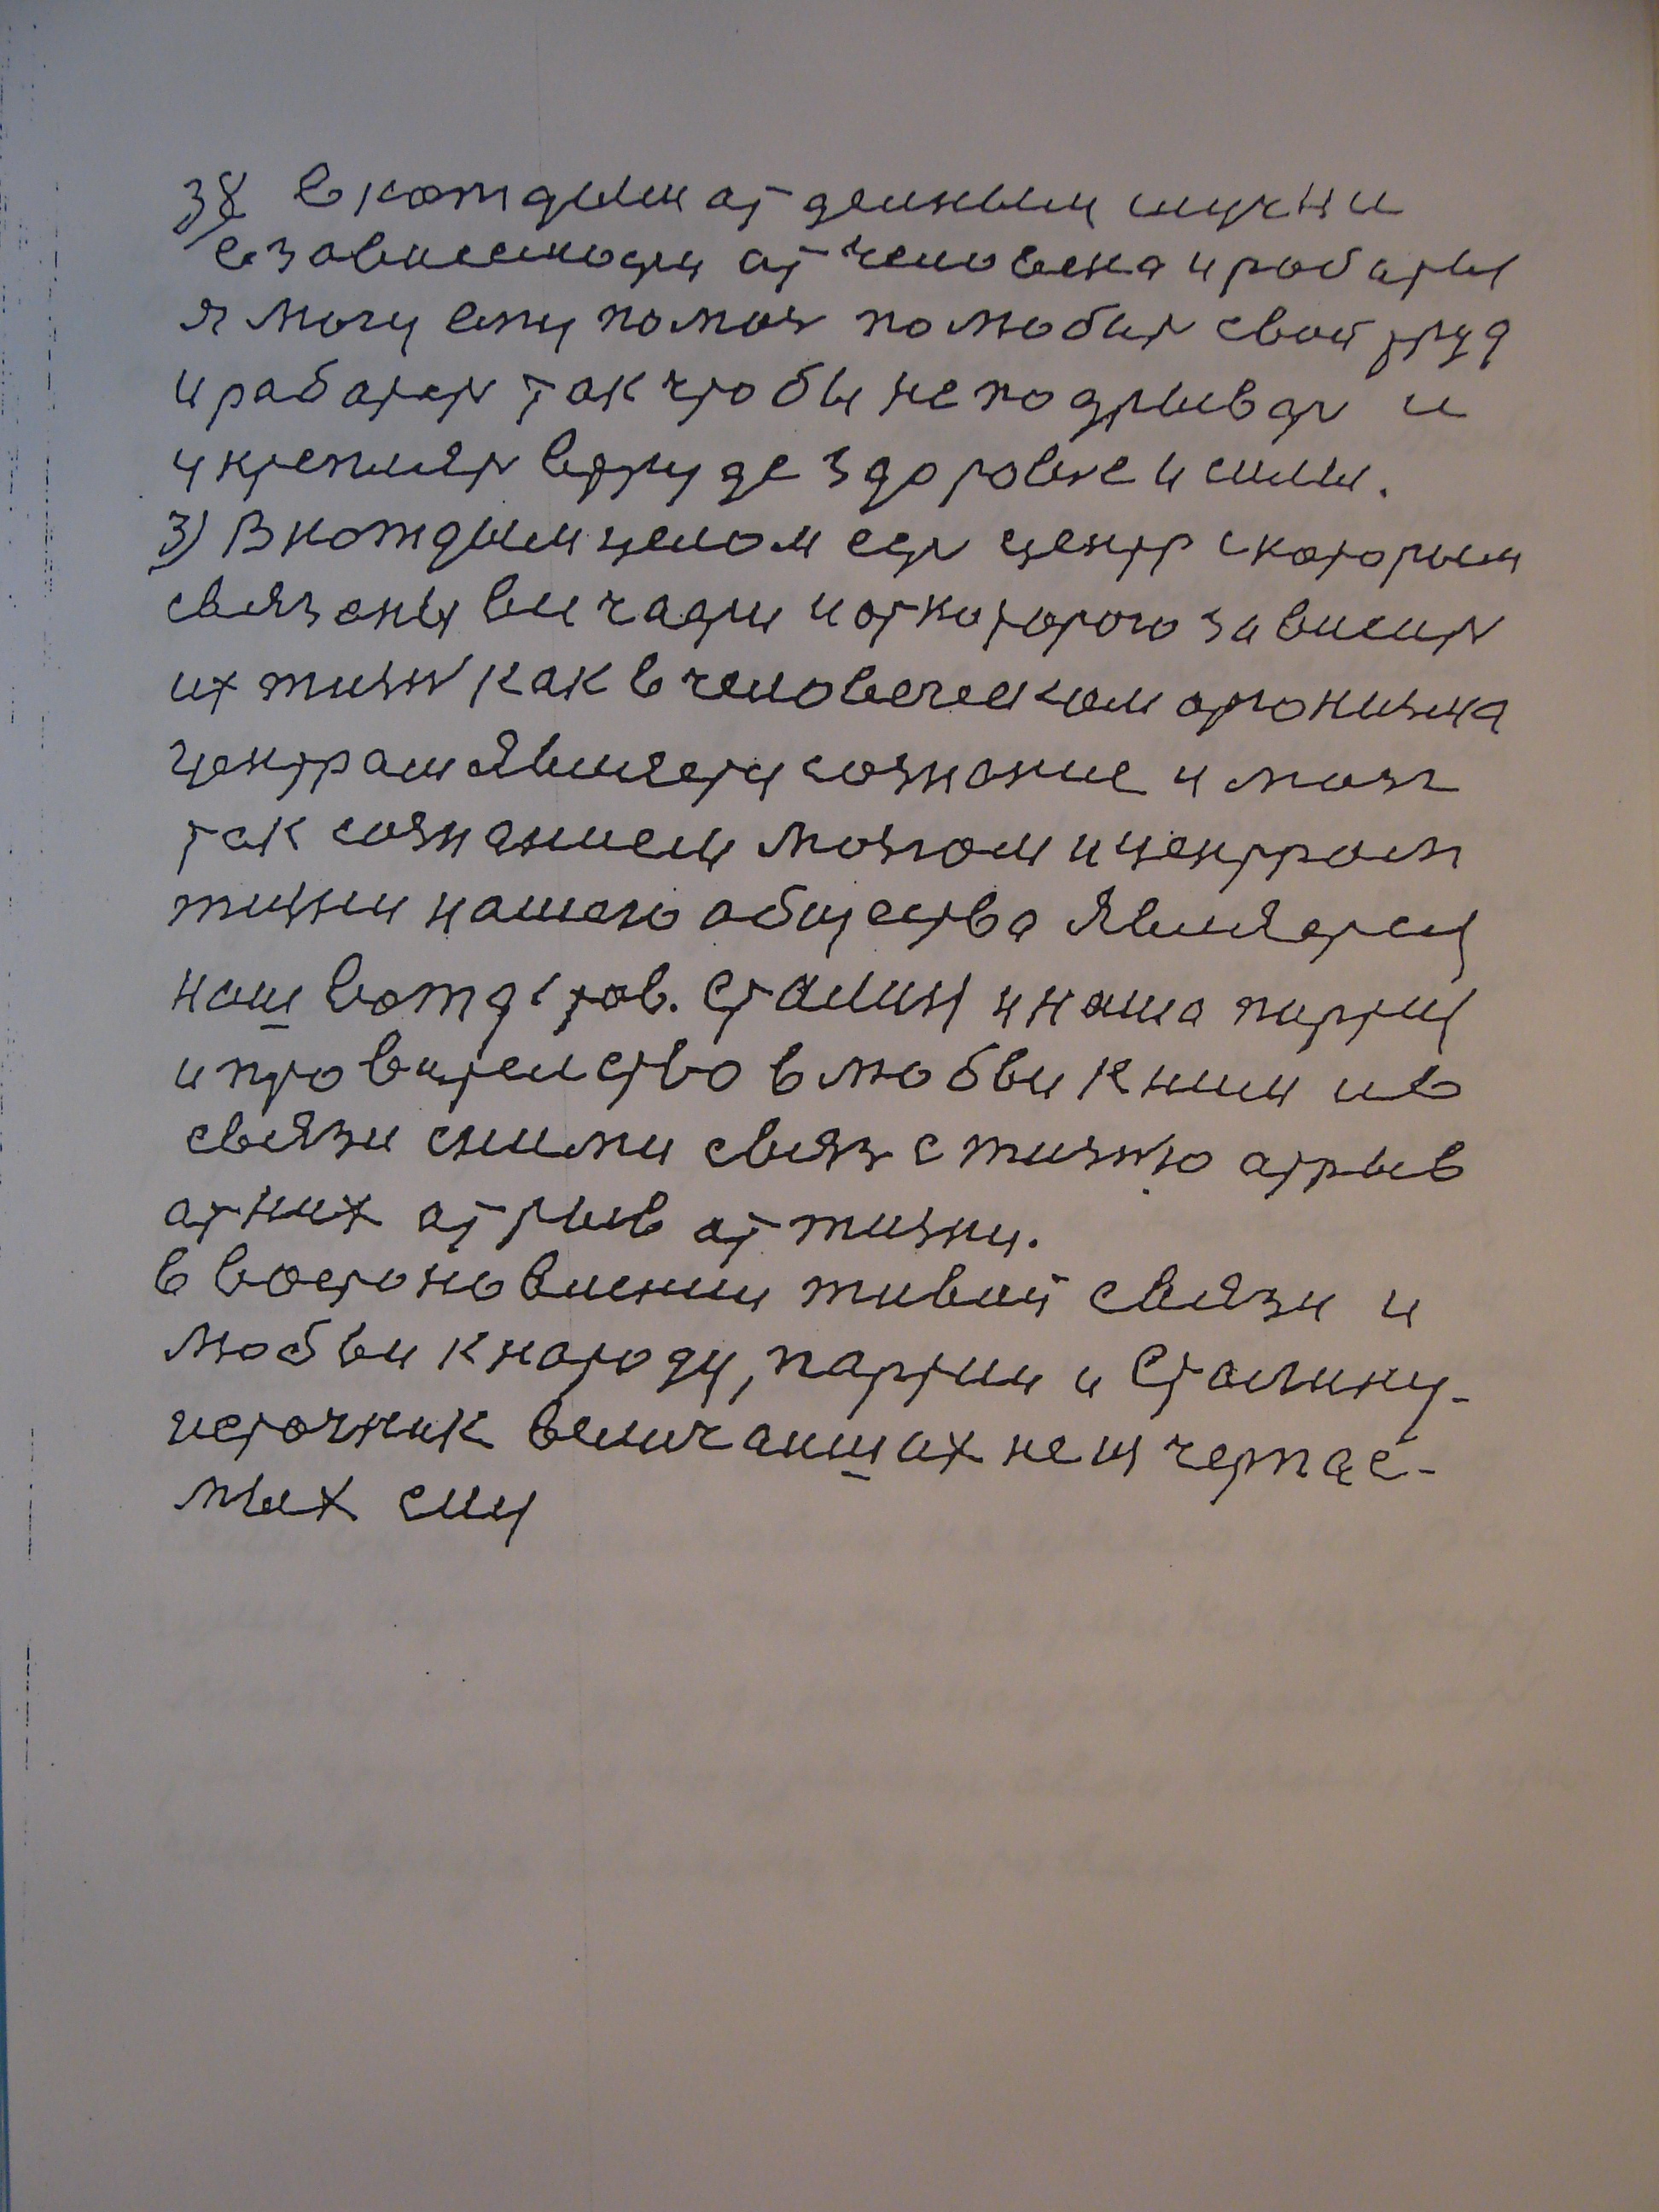 38 в каждым отделным случи и
в зависемости от человека и работы
я могу ему помоч полюбит свой труд
и работат так чтобы не подрыват и
укреплят в труде здоровье и силы.
3) В каждым целом ест центр с которым
связаны вси части и от которого зависит
их жизнь как в человеческом организма
центрам является сознание и мозг
так сознанием мозгом и центром
жизни нашего общества является
наш вождь тов. Сталин и наша партия
и провителство в любви к ним и в
связи с ними связ с жизнью отрыв
от них отрыв от жизни.
в востоновлении живой связи и
любви к народу, партии и Сталину-
источник величайших неисчерпае-
мых сил